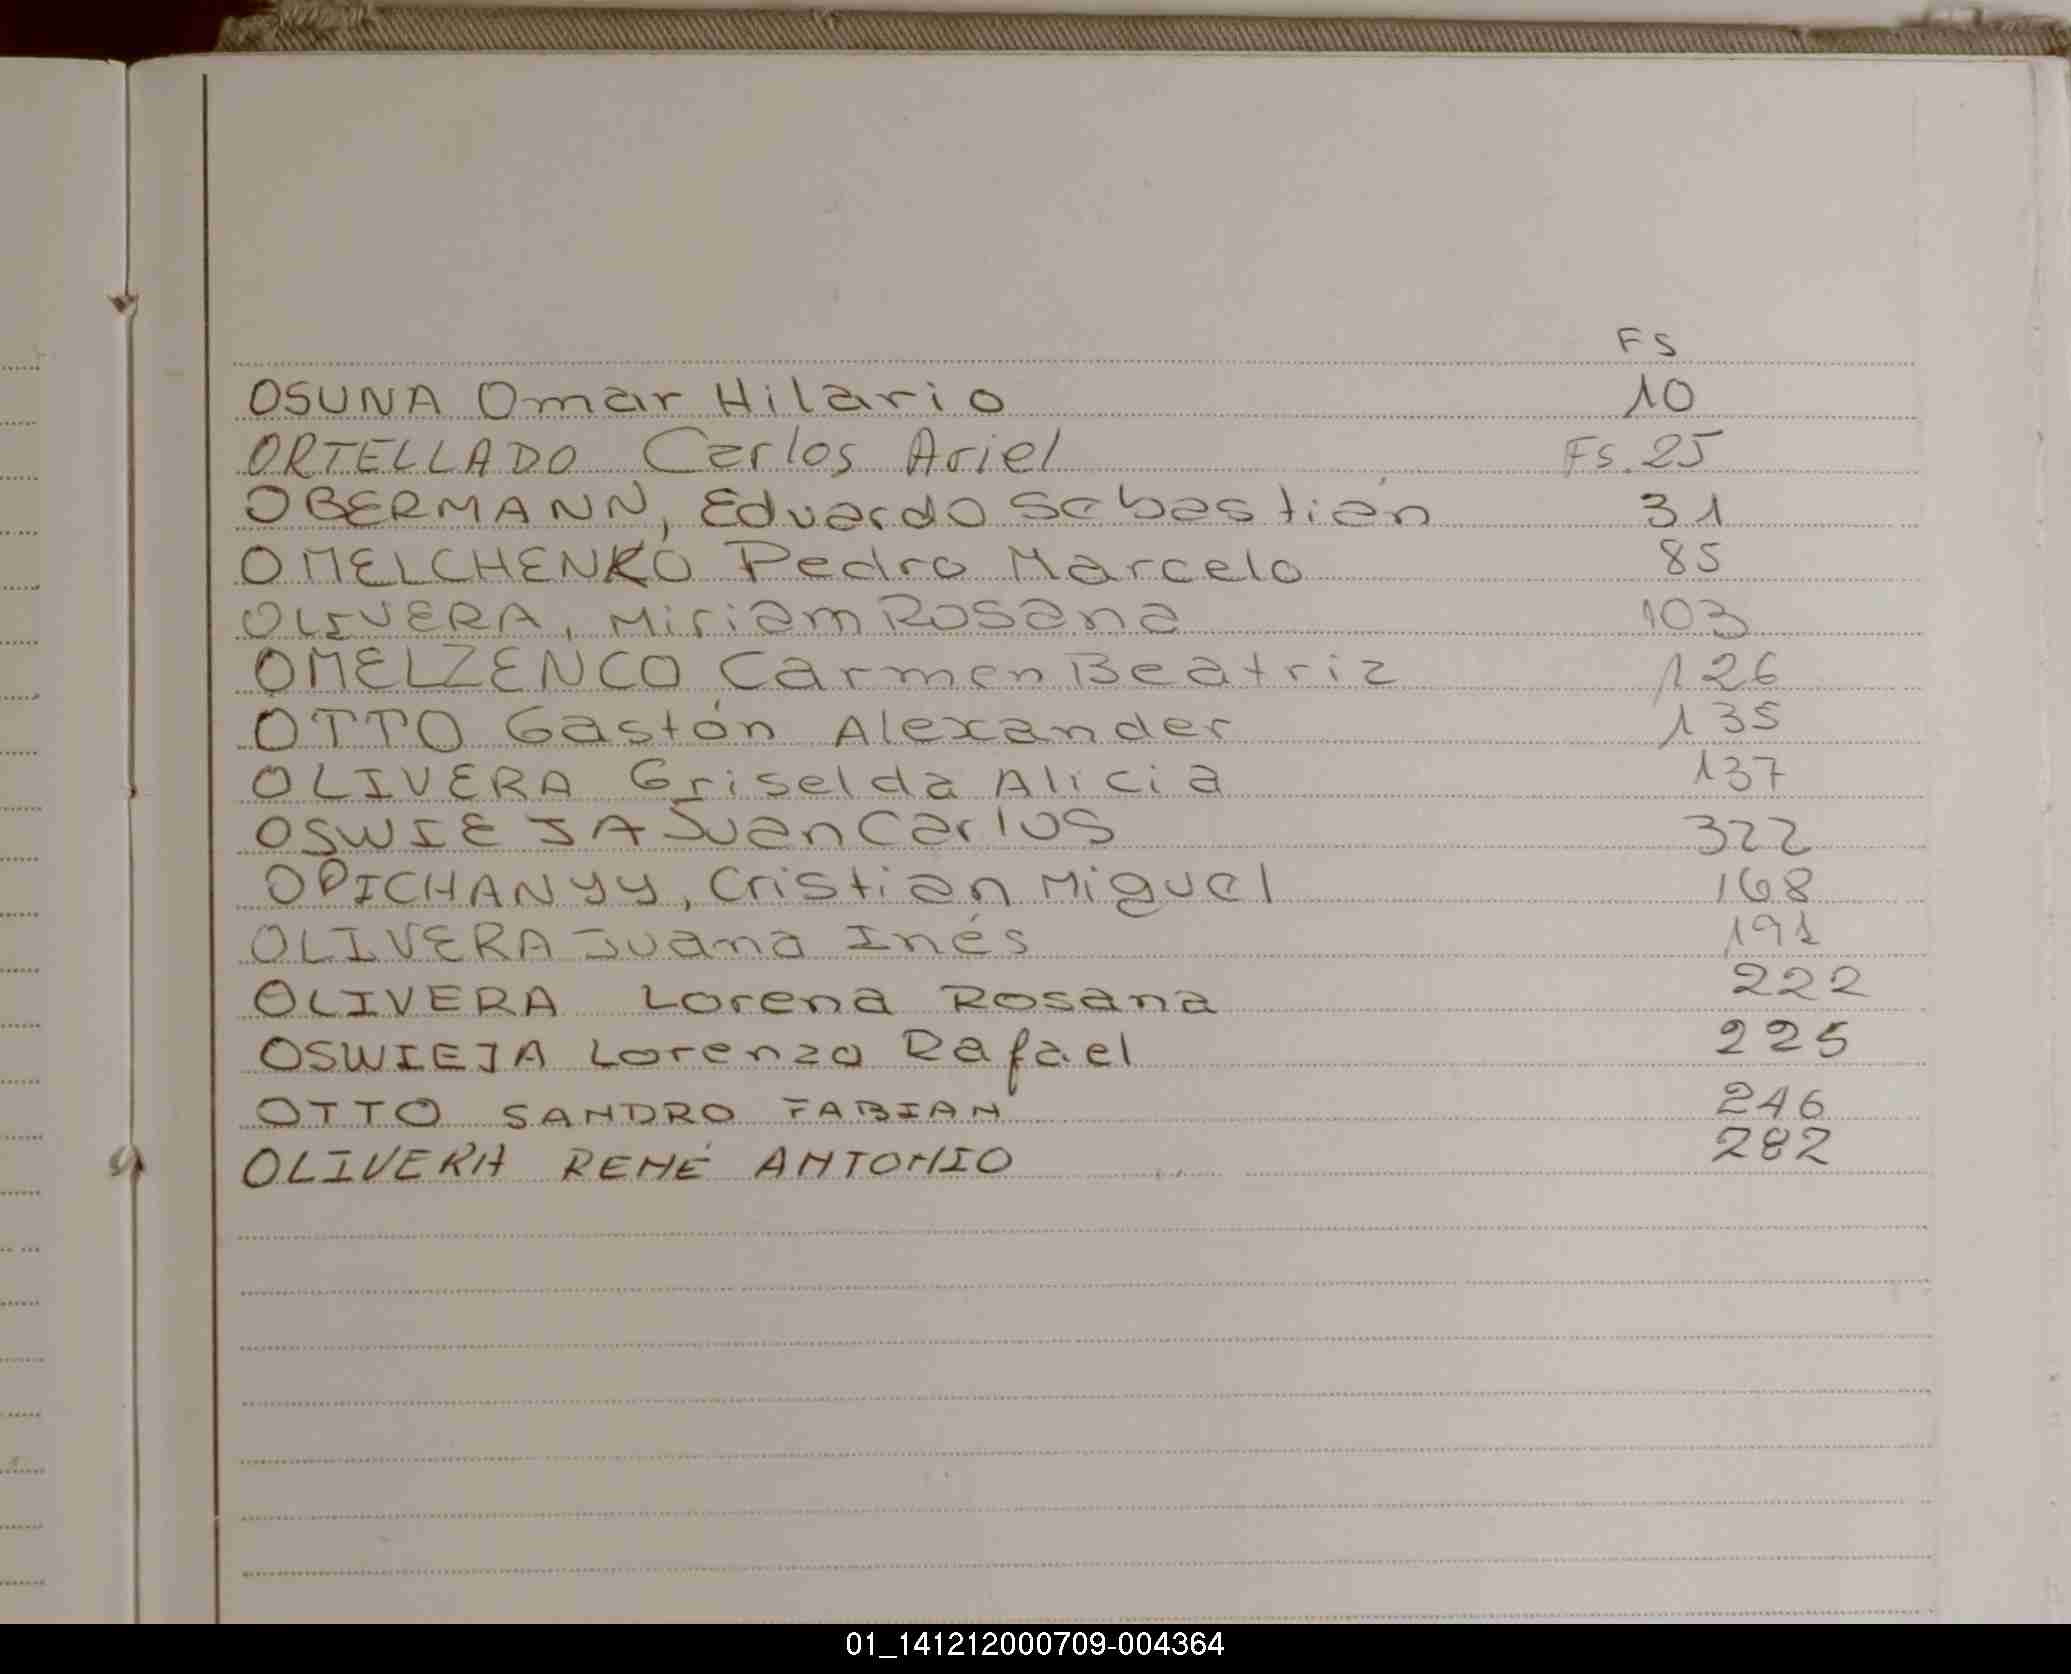 FS
OSUNA Omar Hilario 10
ORTELLADO Carlos Ariel Fs. 25
OBERMANN, Eduardo Sebastián 31
OMELCHENKO Pedro Marcelo 85
OLIVERA, Miriam Rosana 103
OMELZENCO Carmen Beatriz 126
OTTO Gastón Alexander 135
OLIVERA Griselda Alicia 137
OSWIEJA Juan Carlos 322
OPICHANYY, Cristian Miguel 168
OLIVERA Juana Inés 191
OLIVERA Lorena Rosana 222
OSWIEJA Lorenzo Rafael 225
OTTO SANDRO FABIAN 246
OLIVERA RENÉ ANTONIO 282
01_141212000709-004364